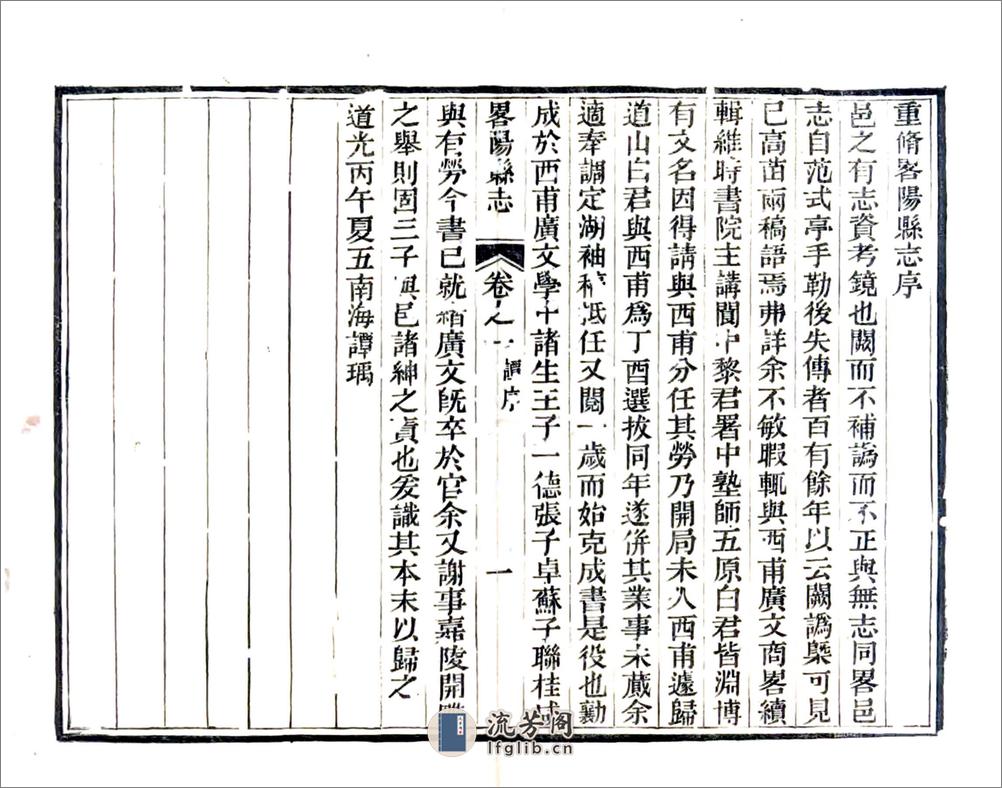 重脩畧陽縣志序
邑之有志資考鏡也闕而不補譌而不正與無志同畧邑
志自范式亭手勒後失傳者百有餘年以云闕譌槩可見
已高苗兩稿語焉弗詳余不敏暇輒與西甫廣文商畧續
輯維時書院主講閬中黎君署中塾師五原白君皆淵博
有文名因得請與西甫分任其勞乃開局未久西甫遽歸
道山白君與西甫爲丁酉選拔同年遂併其業事未蕆余
適奉調定湖袖稿泜任又閱一歲而始克成書是役也勷
成於西甫廣文學中諸生王子一德張子卓蘇子聯桂咸
畧陽縣志 卷之一 譚序 一
與有勞今書已就緒廣文旣卒於官余又謝事嘉陵開雕
之舉則固三子與邑諸紳之責也爰識其本末以歸之
道光丙午夏五南海譚瑀
流芳阁
lfglib.cn